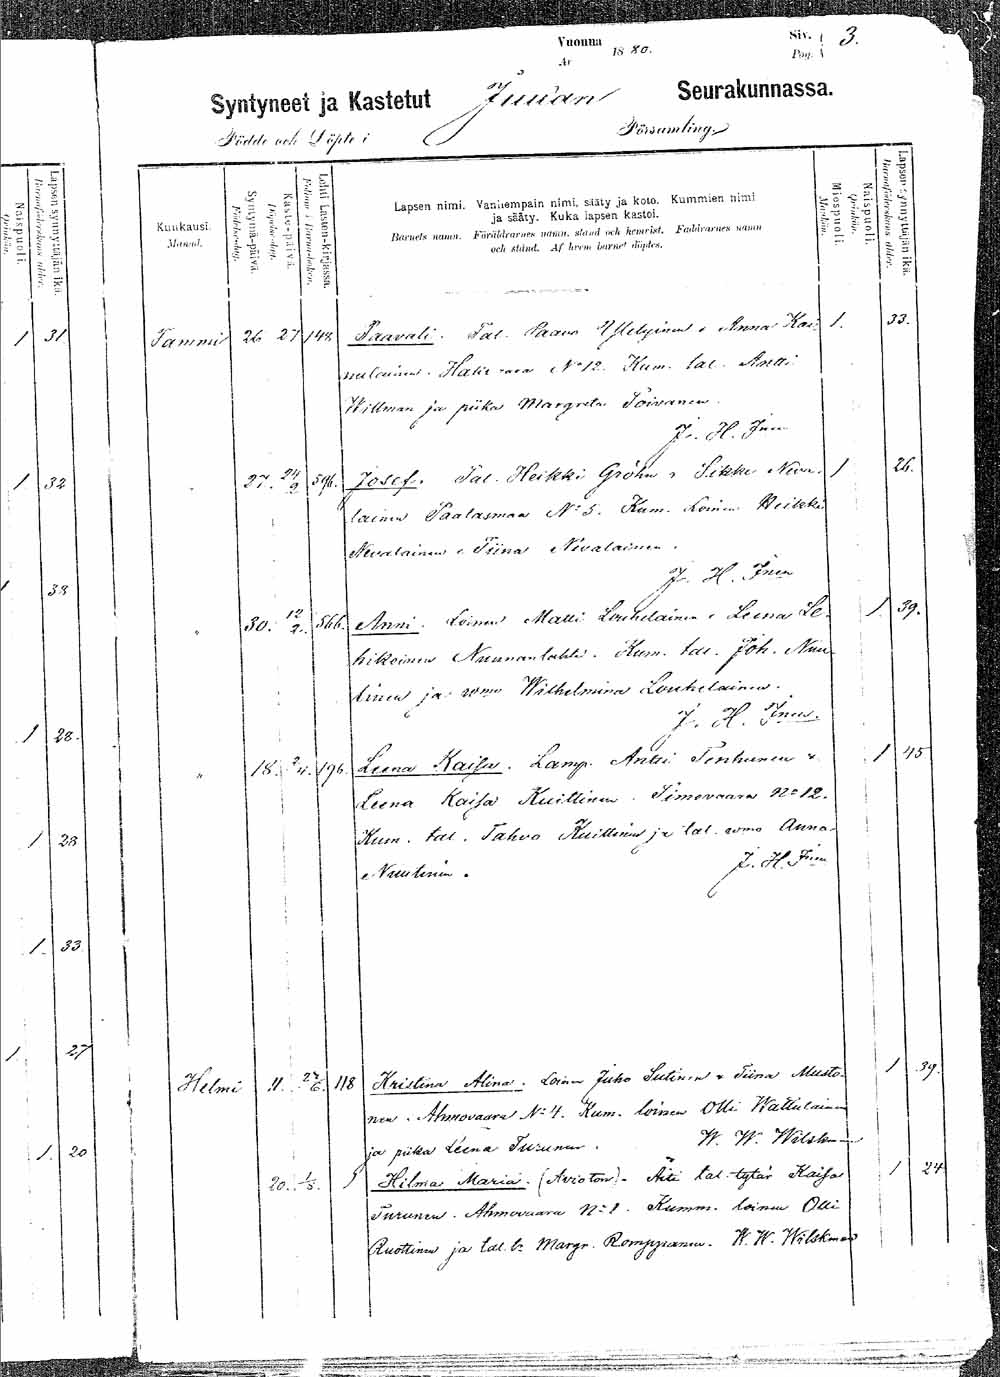 Vuonna 1880. Siv. 3.
År Pag.
Syntyneet ja Kastetut Juuan Seurakunnassa.
Födde och Döpte i Församling.
Naispuoli. Qvinkön.
Lapsen synnyttäjän ikä. Barnaföderskans ålder.
Kuukausi. Månad.
Syntymä-päivä. Födelse-dag.
Kaste-päivä. Döpelse-dag.
Lehti Lasten-kirjassa. Folium i Barnaboken.
Lapsen nimi. Vanhempain nimi, sääty ja koto. Kummien nimi
ja sääty. Kuka lapsen kastoi.
Barnets namn. Föräldrarnes namn, stånd och hemvist. Faddrarnes namn
och stånd. Af hvem barnet döptes.
Miespuoli. Mankön.
Naispuoli. Qvinkön.
Lapsen synnyttäjän ikä. Barnaföderskans ålder.
1 31
1 32
1 38
1 28.
1 28
1. 33
1 27
1. 20
Tammi 26 27 148 Paavali. Tal. Paavo 1. 33.
N:o 12. Kum. tal. Antti
Willman ja piika Margreta Toivanen.
J. H. Inen
27. 596. Josef. Tal. Heikki Gröhn 1 26.
lainen Paalasmaa N:o 5. Kum. Loinen Heikki
Nevalainen Tiina Nevalainen.
J. H. Inen
" 30. 12/2. 566. Anni. Loinen Matti Louhelainen Leena Le- 1 39.
hikoinen Nunnanlahti. Kum. tal. Joh. Nuu-
tinen ja vmo Wilhelmina Louhelainen.
J. H. Inen.
" 18. 2/4. 196. Leena Kaisa. Lamp. Antti Tenhunen 1 45
Leena Kaisa Kuittinen. Timovaara N:o 12.
Kum. tal. Tahvo Kuittinen ja tal. vmo Anna
Nuutinen. J. H. Inen
Helmi 11. 27/6. 118 Kristina Alina. Loinen Juho Sutinen Tiina Musto- 1 39.
nen. Ahmovaara N:o 4. Kum. loinen Olli Wattulainen
ja piika Leena Turunen. W. W. Wilskman
20. 1/5. Hilma Maria. (Avioton). Äiti tal. tytär Kaisa 1 24
Turunen. Ahmovaara N:o 1. Kumm. loinen Olli
Ruottinen ja tal. tr Margr. Romppanen. W. W. Wilskman